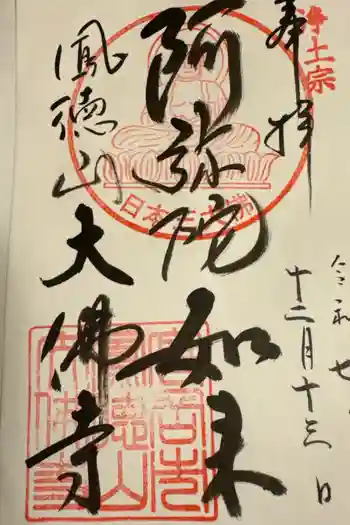 奉拝
浄土宗
阿弥陀如来
鳳徳山
大佛寺
令和七
十二月十三日
日本三大佛